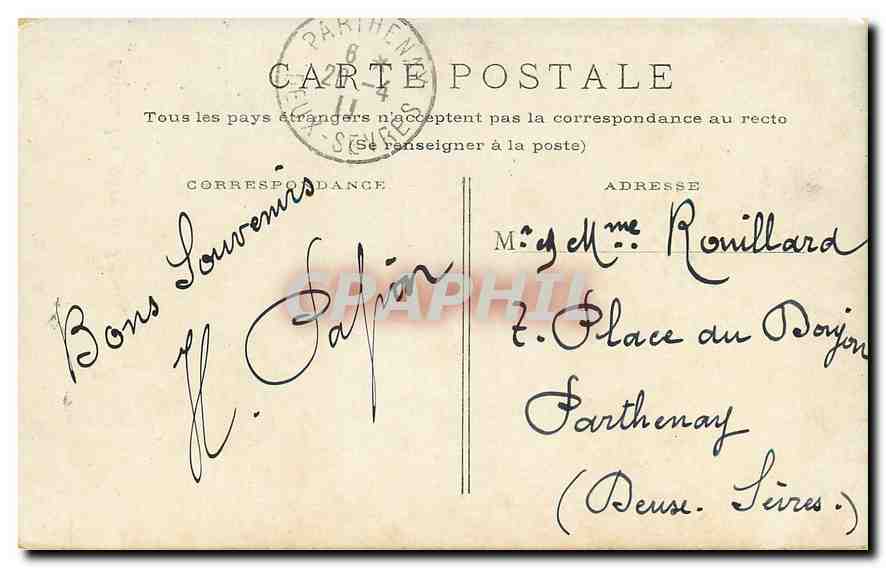 PARTHENAY
6 *
2 -4
11
DEUX-SEVRES
CARTE POSTALE
Tous les pays étrangers n'acceptent pas la correspondance au recto
(Se renseigner à la poste)
CORRESPONDANCE
Bons Souvenirs
H. Papin
ADRESSE
M.r et Mme Rouillard
7. Place du Donjon
Parthenay
(Deux-Sèvres.)
CPAPHIL